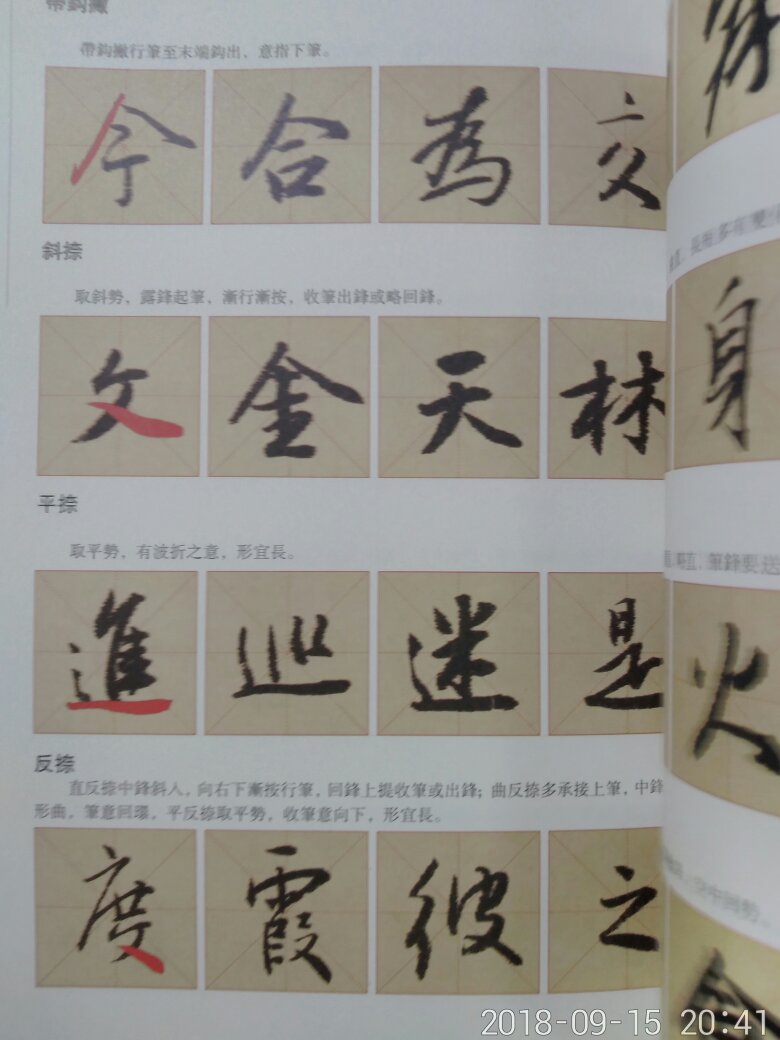 帶鈎撇
帶鈎撇行筆至末端鈎出，意指下筆。
今 合 為 交
斜捺
取斜勢，露鋒起筆，漸行漸按，收筆出鋒或略回鋒。
文 金 天 林
平捺
取平勢，有波折之意，形宜長。
進 巡 迷 是
反捺
直反捺中鋒斜入，向右下漸按行筆，回鋒上提收筆或出鋒；曲反捺多承接上筆，中鋒
形曲，筆意回環，平反捺取平勢，收筆意向下，形宜長。
度 霞 彼 之
身
筆鋒要送
火
2018-09-15 20:41